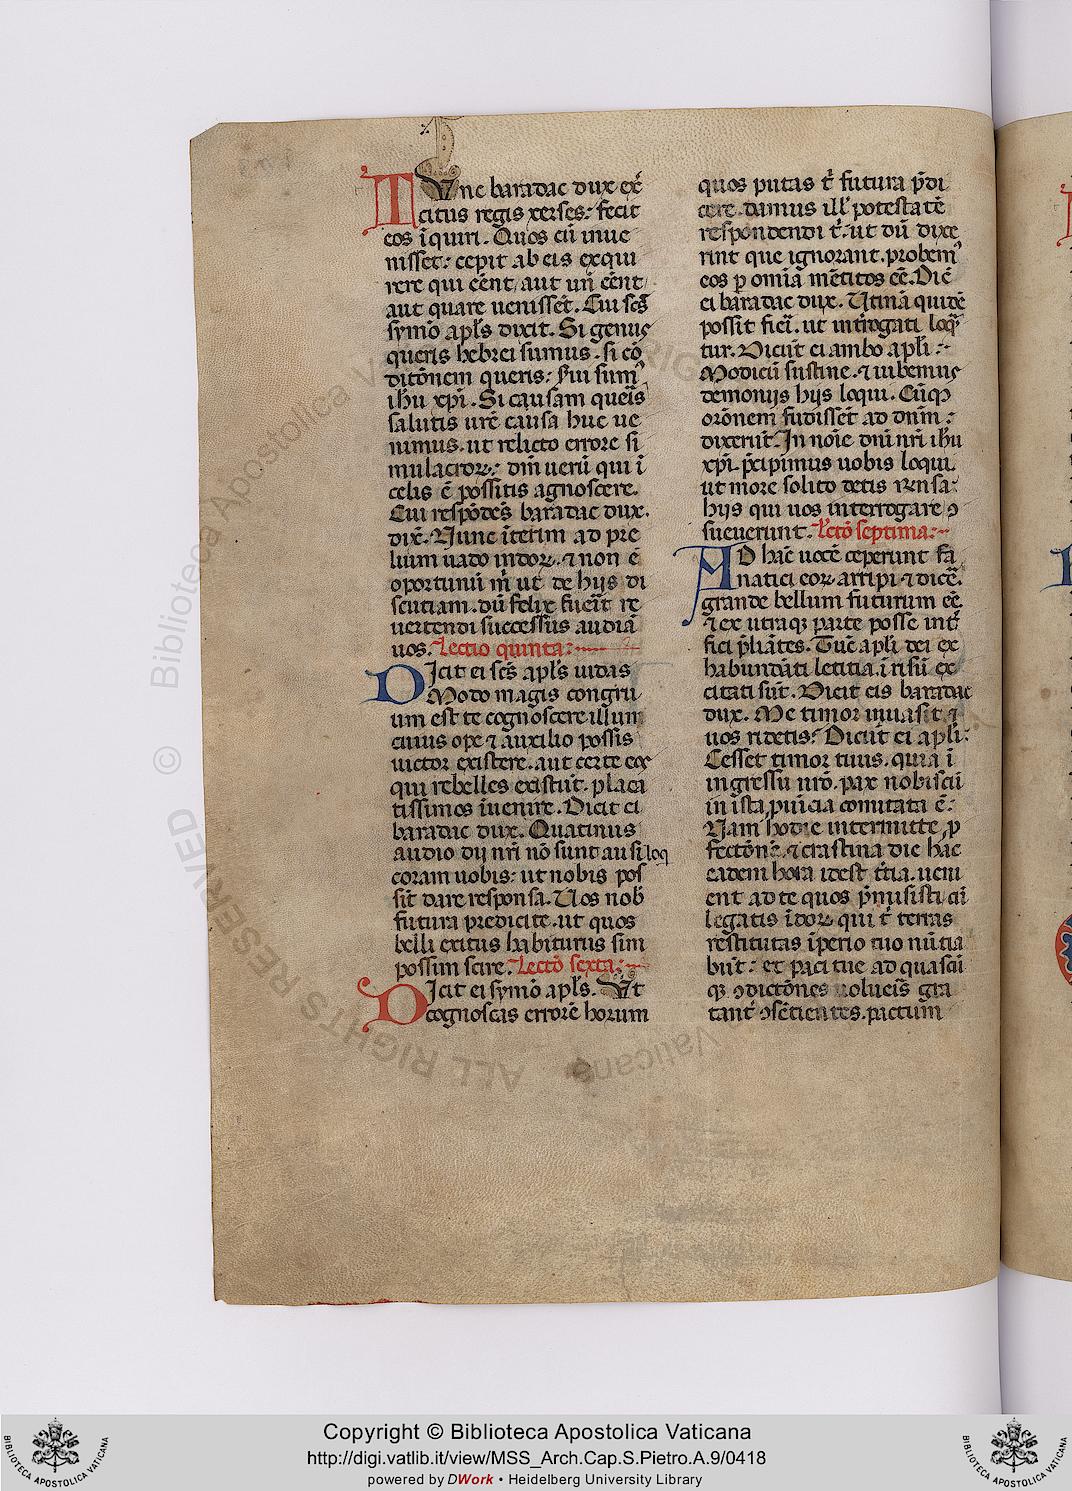 Tunc baradac dux ex̄
citus regis xerses: fecit
eos īquiri. Quos cū inue
nisset: cepit ab eis exqui
rere qui eēnt, aut uñ eēnt
aut quare uenissēt. Cui scs̄
symō apl̄s dixit. Si genus
queris hebrei sumus. si cō
ditōnem queris: serui sumꝰ
ihū xpī. Si causam queīs
salutis ur̄e causa huc ue
nimus. ut relicto errore si
mulacroꝝ: dm̄ uerū qui ī
celis ē possitis agnoscere.
Cui respōdēs baradac dux.
dix̄. Nunc īterim ad pre
lium uado indoꝝ. ⁊ non ē
oportunū m̄ ut de hijs di
scutiam. dū felix fuerīt re
uertendi successus audiā
uos. Lectio quinta:
Dicit ei scs̄ apl̄s iudas
Modo magis congru
um est te cognoscere illum
cuius ope ⁊ auxilio possīs
uictor existere. aut certe eos
qui rebelles existūt. placa
tissimos īuenire. Dicit ei
baradac dux. Quatinus
audio dij nrī nō sunt ausi loq
coram uobis: ut nobis pos
sīt dare responsa. Uos nob̄
futura predicite. ut quos
belli exitus habiturus sim
possim scire. Lectō sexta:
Dicit ei symō apl̄s. Ut
cognoscas errorē horum
quos putas t̄ futura p̄di
cere. damus ill̄ potestatē
respondendi t̄. ut dū dixe
rint que ignorant. probemꝰ
eos p omīa mētitos eē. Dic̄
ei baradac dux. Utinā quidē
possit fieri. ut int̄rogati loqū
tur. Dicūt ei ambo apl̄i:
Modicū sustine. ⁊ iubemus
demonijs hijs loqui. Cūqꝫ
orōnem fudissēt ad dnm̄:
dixerūt. In noīe dnī nrī ihū
xpī. p̄cipimus uobis loqui
ut more solito detis rēnsa:
hijs qui uos interrogare ꝯ
sueuerunt. Lectō septima:
Ad hāc uocē ceperunt fa
natici eoꝝ arripi ⁊ dicē.
grande bellum futurum eē.
⁊ ex utraqꝫ parte posse int̄
fici p̄liātes. Tūc apl̄i dei ex
habundāti letitia. ī risū ex
citati sūt. Dicit eis baradac
dux. Me timor inuasit ⁊
uos ridetis: Dicūt ei apl̄i:
Cesset timor tuus. quia ī
ingressu nrō. pax nobiscū
in ista ꝓuīcia comitata ē:
Nam hodie intermitte ꝓ
fectōnē. ⁊ crastina die hac
eadem hora idest t̄tia. ueni
ent ad te quos p̄misisti cū
legatis īdoꝝ qui t̄ terras
restitutas īperio tuo nūtia
būt: et paci tue ad quascū
qꝫ ꝯdictōnes uolueīs gra
tant̄ ꝯsētientes. pactum
Copyright © Biblioteca Apostolica Vaticana
http://digi.vatlib.it/view/MSS_Arch.Cap.S.Pietro.A.9/0418
powered by DWork • Heidelberg University Library
BIBLIOTECA APOSTOLICA VATICANA
BIBLIOTECA APOSTOLICA VATICANA
© Biblioteca Apostolica Vaticana
ALL RIGHTS RESERVED